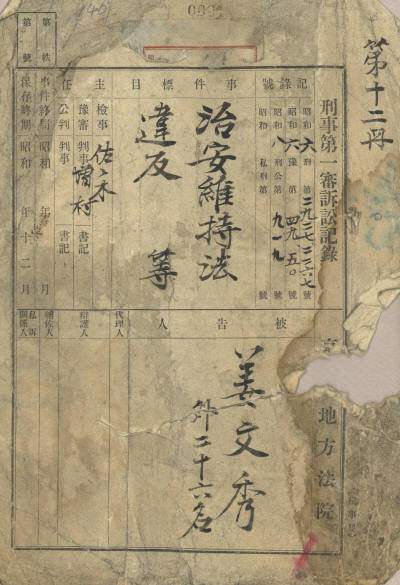 第十二册
刑事第一審訴訟記錄
地方法院
記錄號
昭和六刑第二九二七二六七號
昭和六豫第四九五〇號
昭和八刑公第九一九號
昭和 私刑第 號
事件標目
治安維持法
違反 等
主任
檢事 佐々木
豫審判事 増村 書記
公判判事 書記
事件終局 昭和 年 月
保存終期 昭和 年十二月
第 帙
第 號
被告人
姜文秀
外二十六名
代理人
辯護人
輔佐人
私訴
關係人